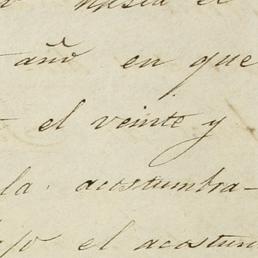 hasta el
año en que
el veinte y
la acostumbra-
el acostum